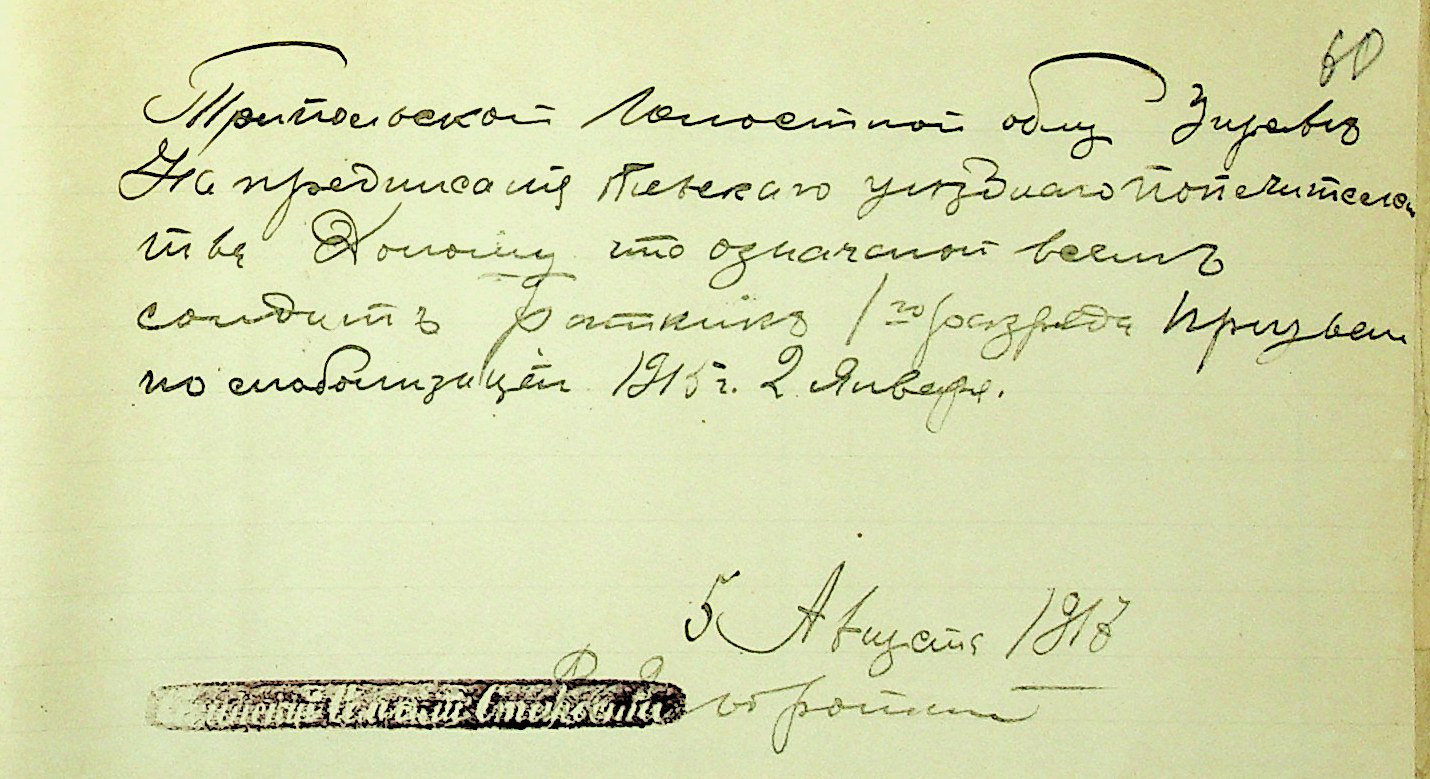 60
Трипольской Волостной обл Управъ
На предписания Киевскаго уѣзднаго попечительс
тва Доношу что означеной всемъ
солдатъ Ратникъ 1го разряда призван
по мобилизацiи 1915 г. 2 Января.
5 Августа 1917
Сельский Староста